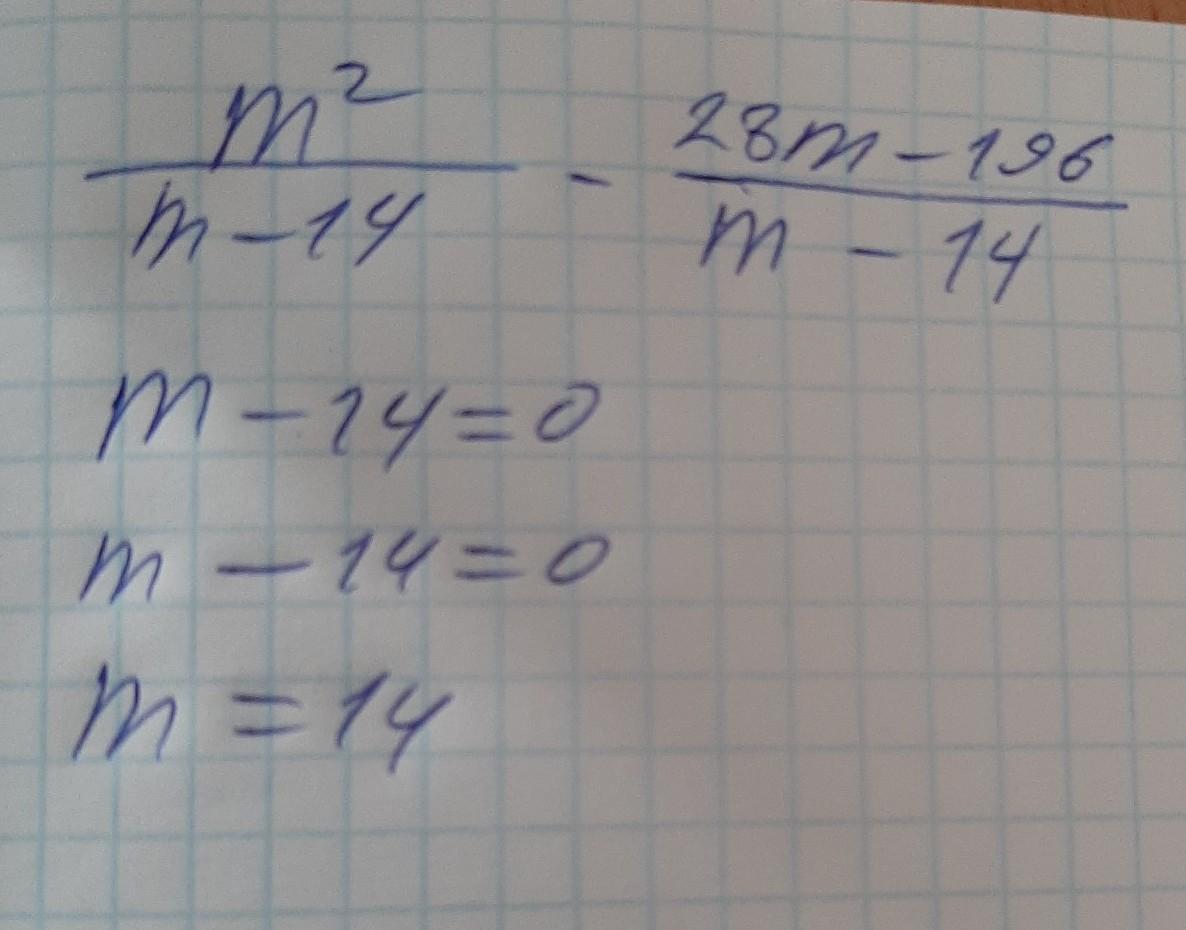 m²/(m-14) - (28m-196)/(m-14)
m-14=0
m-14=0
m=14